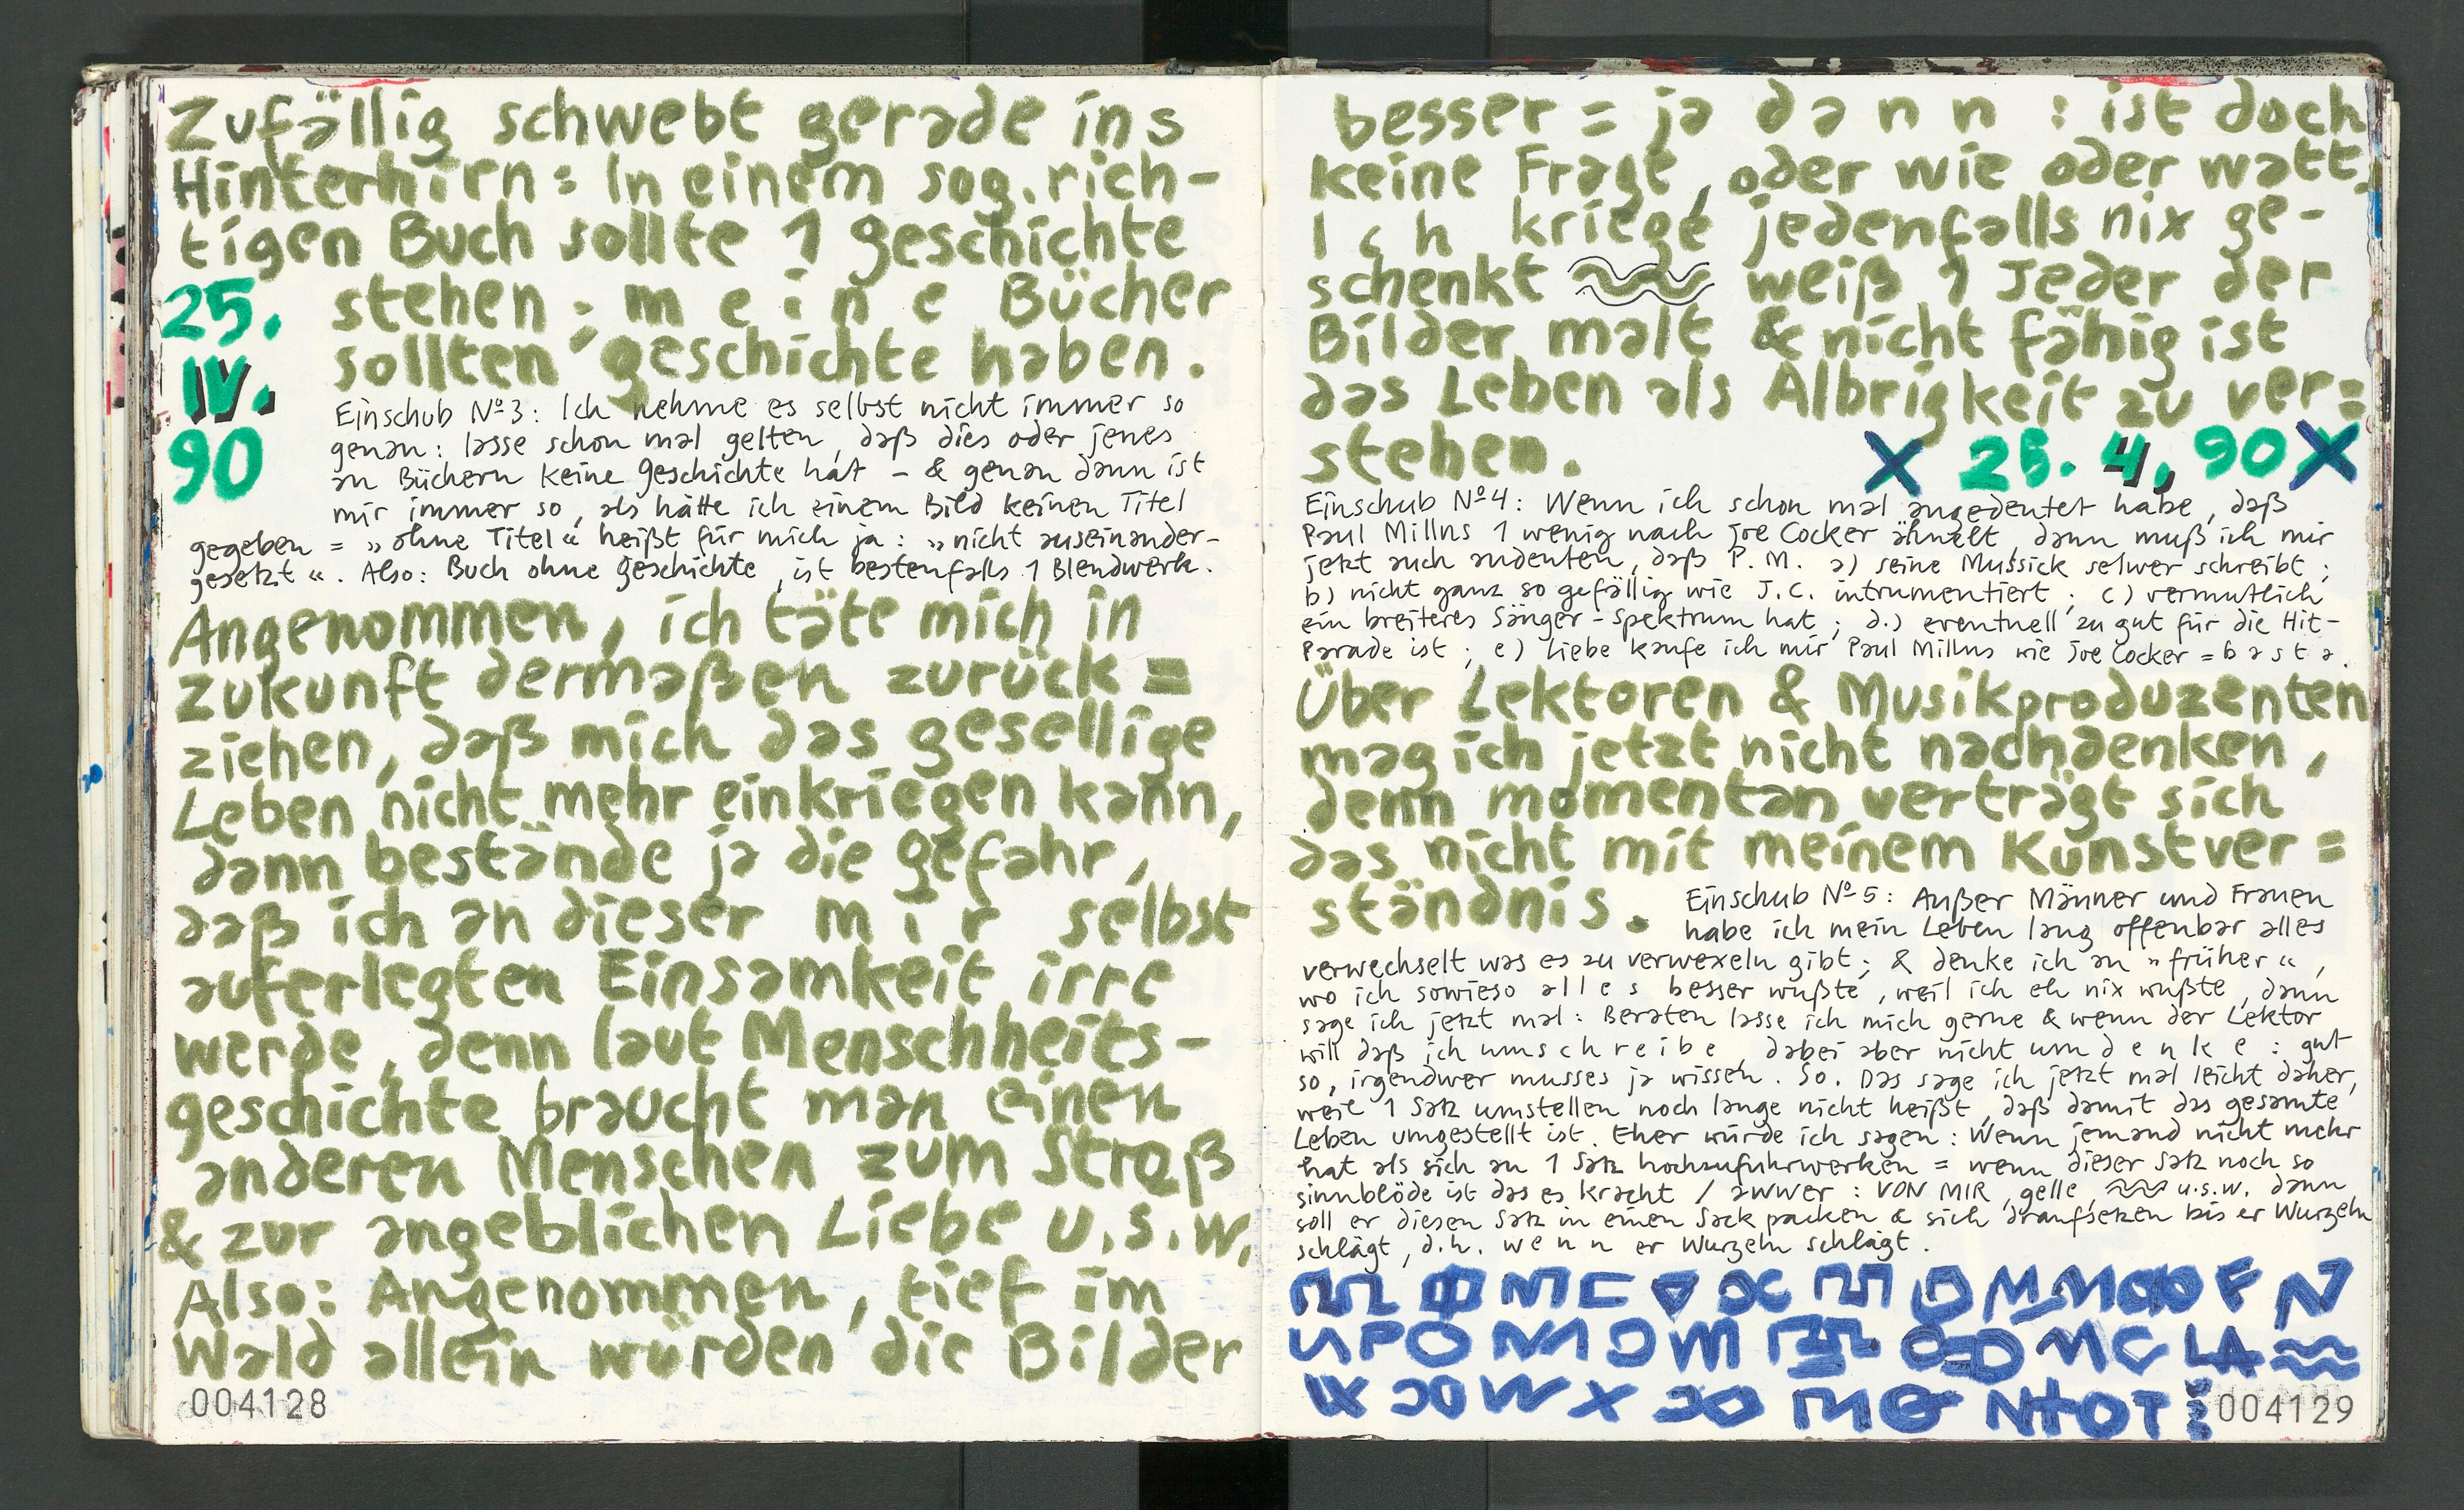 Zufällig schwebt gerade ins
Hinterhirn: In einem sog. rich-
tigen Buch sollte 1 geschichte
stehen; m e i n e Bücher
sollten geschichte haben.
25.
IV.
90
Einschub Nº 3: Ich nehme es selbst nicht immer so
genau: lasse schon mal gelten, daß dies oder jenes
an Büchern keine geschichte hat – & genau dann ist
mir immer so, als hätte ich einem Bild keinen Titel
gegeben = „ohne Titel“ heißt für mich ja: „nicht auseinander-
gesetzt“. Also: Buch ohne geschichte, ist bestenfalls 1 Blendwerk.
Angenommen, ich täte mich in
zukunft dermaßen zurück=
ziehen, daß mich das gesellige
Leben nicht mehr einkriegen kann,
dann bestände ja die gefahr,
daß ich an dieser m i r selbst
auferlegten Einsamkeit irre
werde, denn laut Menschheits-
geschichte braucht man einen
anderen Menschen zum Straß
& zur angeblichen Liebe u.s.w.
Also: Angenommen, tief im
Wald allein würden die Bilder
004128
besser = ja d a n n : ist doch
keine Frage, oder wie oder watt.
I c h kriege jedenfalls nix ge-
schenkt weiß 1 Jeder der
Bilder malt & nicht fähig ist
das Leben als Albrigkeit zu ver=
stehen.
X 25. 4. 90 X
Einschub Nº 4: Wenn ich schon mal angedeutet habe, daß
Paul Millns 1 wenig nach Joe Cocker ähnelt, dann muß ich mir
jetzt auch andeuten, daß P. M. a) seine Mussick selwer schreibt;
b) nicht ganz so gefällig wie J. C. intrumentiert; c) vermutlich
ein breiteres Sänger-Spektrum hat; d.) eventuell zu gut für die Hit-
Parade ist; e) Liebe kaufe ich mir Paul Millns wie Joe Cocker = b a s t a.
Über Lektoren & Musikproduzenten
mag ich jetzt nicht nachdenken,
denn momentan verträgt sich
das nicht mit meinem Kunstver=
ständnis.
Einschub Nº 5: Außer Männer und Frauen
habe ich mein Leben lang offenbar alles
verwechselt was es zu verwexeln gibt; & denke ich an „früher“,
wo ich sowieso a l l e s besser wußte, weil ich eh nix wußte, dann
sage ich jetzt mal: Beraten lasse ich mich gerne & wenn der Lektor
will daß ich um s c h r e i b e, dabei aber nicht um d e n k e : gut
so, irgendwer musses ja wissen. So. Das sage ich jetzt mal leicht daher,
weil 1 Satz umstellen noch lange nicht heißt, daß damit das gesamte
Leben umgestellt ist. Eher würde ich sagen: Wenn jemand nicht mehr
hat als sich an 1 Satz hochzufuhrwerken = wenn dieser Satz noch so
sinnblöde ist das es kracht / awwer: VON MIR, gelle, u.s.w. dann
soll er diesen Satz in einen Sack packen & sich draufsetzen bis er Wurzeln
schlägt, d.h. w e n n er Wurzeln schlägt.
004129